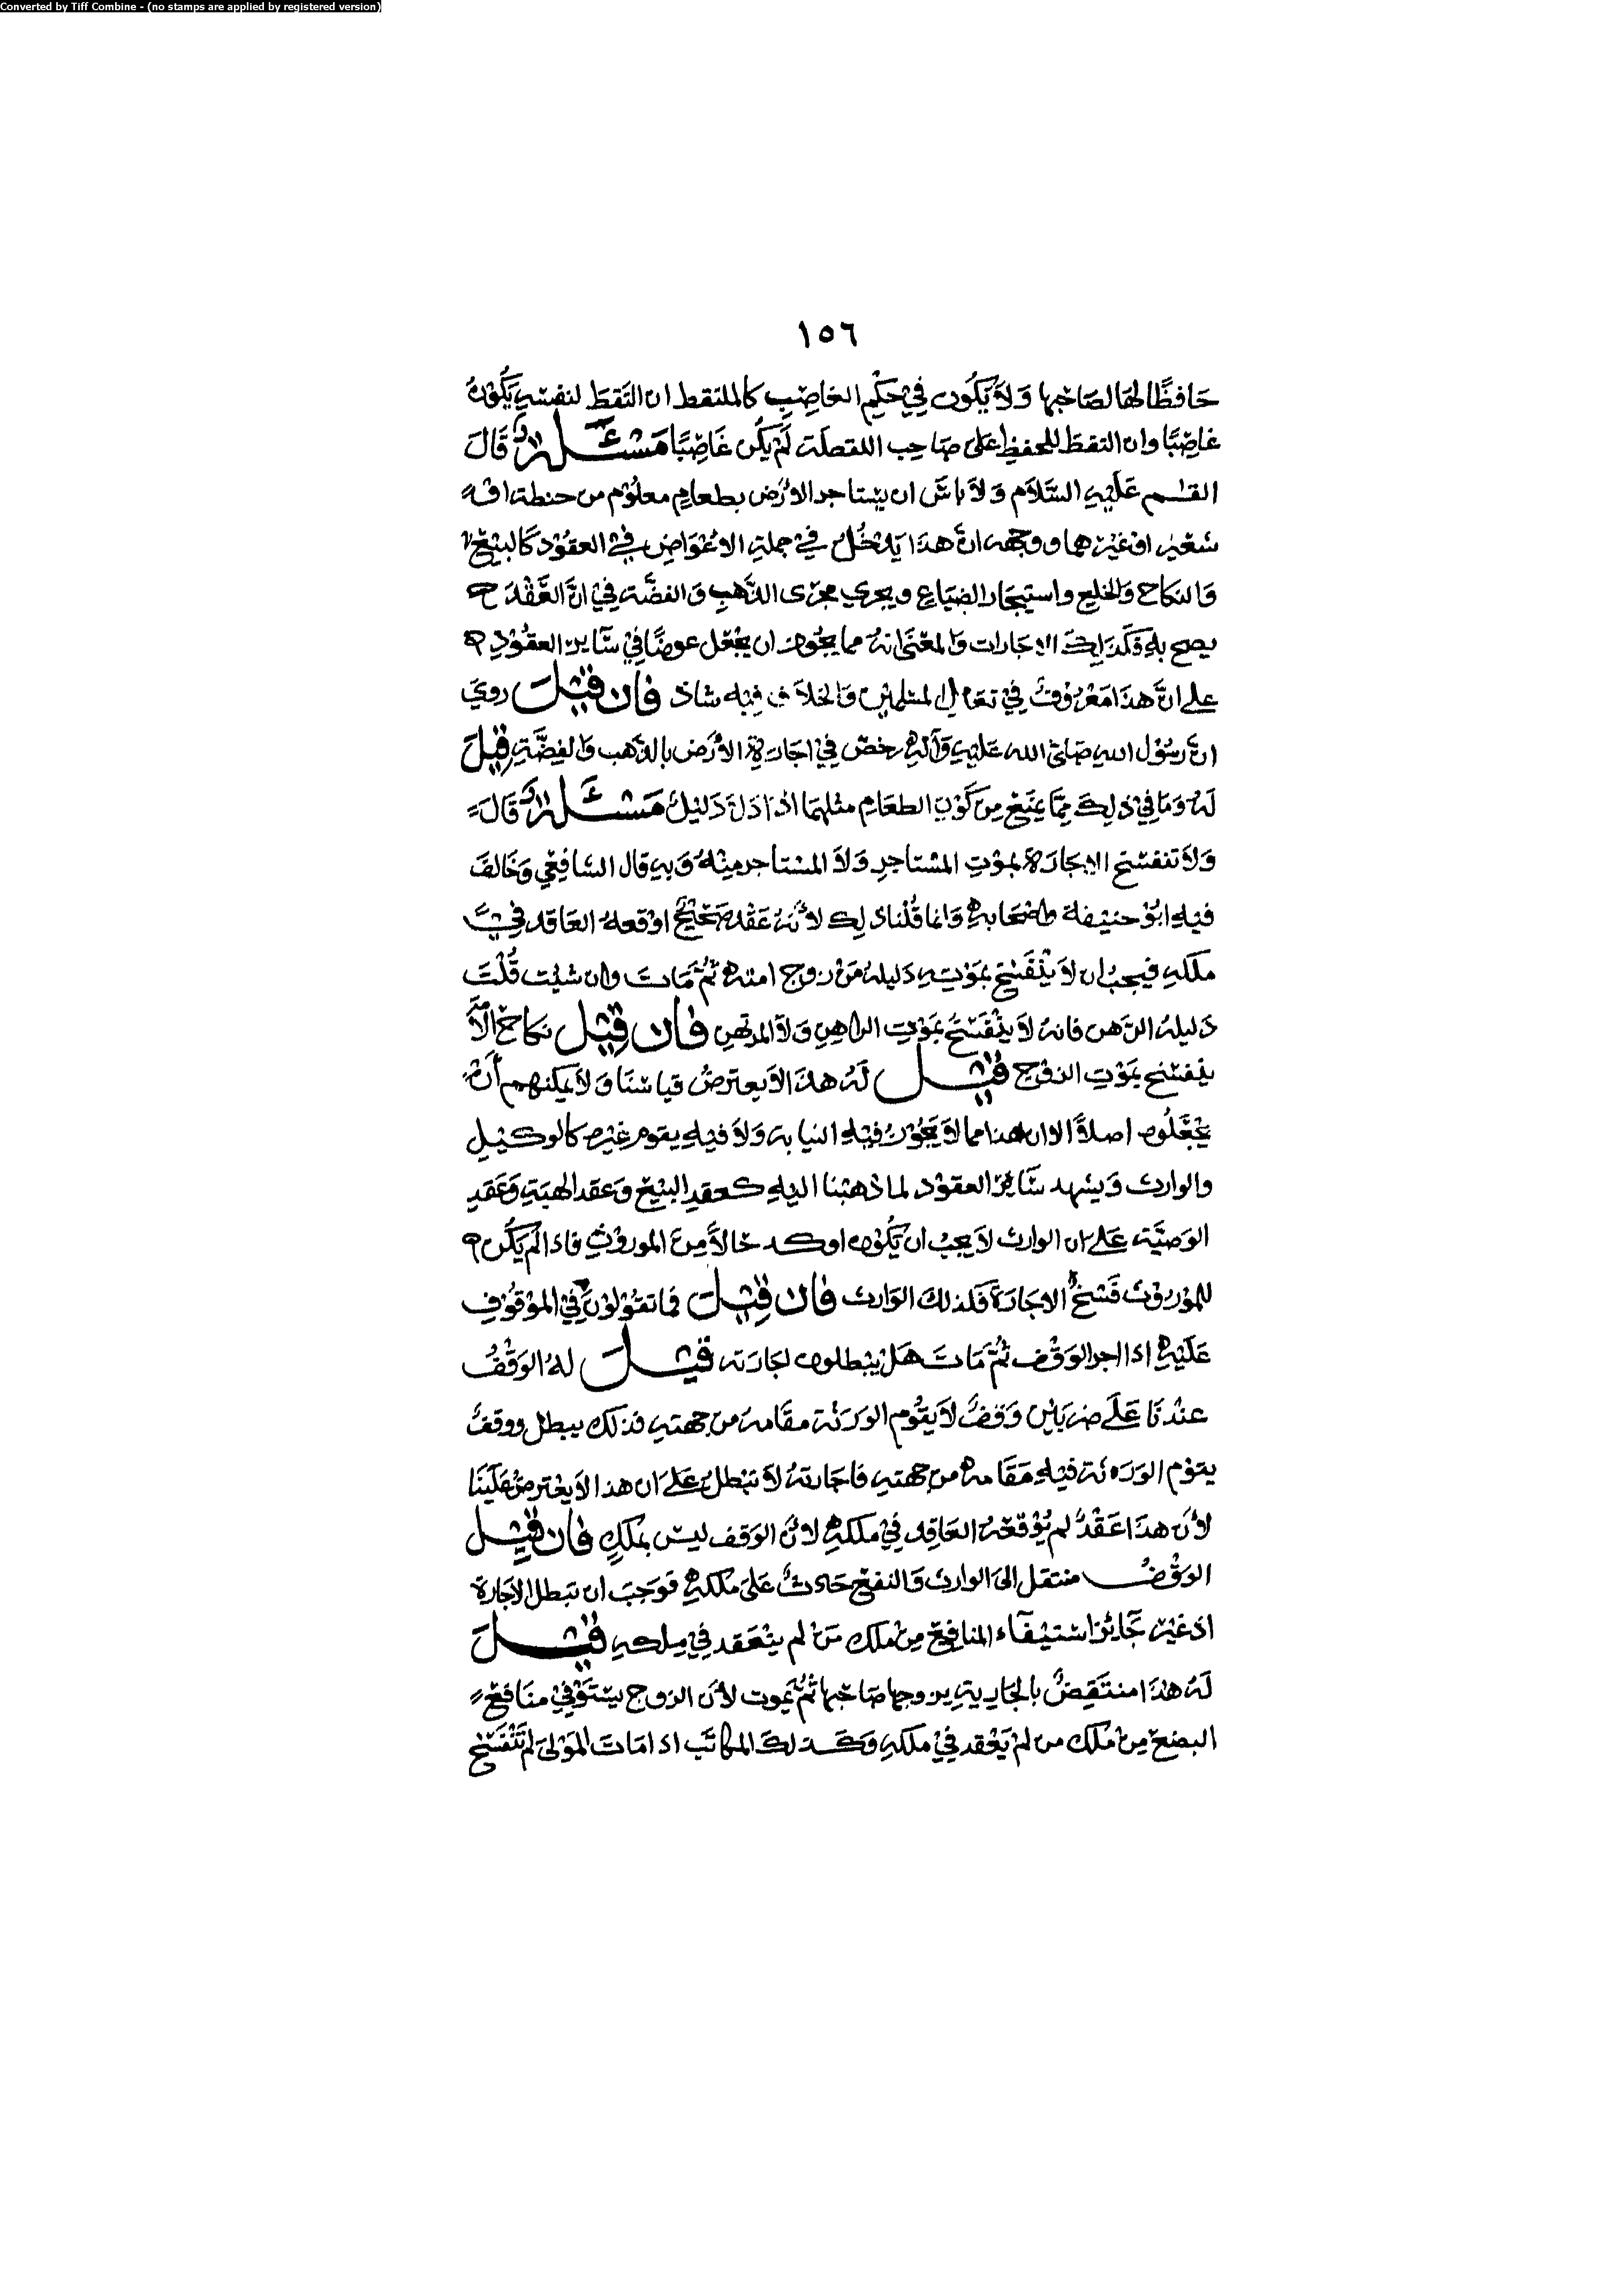 Converted by Tiff Combine - (no stamps are applied by registered version)
١٥٦
حَافظًا لهَا لصَاحبها وَلاَ يَكُون فِي حكْمِ الغاصِب كالملتقط ان التَقطَ لنفسِهِ يَكُونُ
غاصِبًا وان التقطَ للحفظِ عَلى صَاحِب اللقطة لَمْ يَكُن غَاصِبًا مَسْئَلة قَالَ
القسم عَلَيْهِ السَّلَام وَلاَ باسَ ان يستاجر الاَرْض بطعامٍ معلُوْم من حنطة اوْ
شعَيْرٍ اوْ غَيْرهما ووجهه انَّ هذَا يَدْخُلُ فِيْ جملةِ الاعْوَاضِ فِي العقُوْد كَالبَيْعِ
وَالنكاح وَالخلعِ واستيجار الضيَاعِ ويجري مجرَى الذَّهبِ وَالفضَّة فِيْ انَّ العَقْدَ
يصح بِهِ فكَذلِكَ الاِجارات وَالمعْنَى انهُ مما يجُوزُ ان يجْعَل عوضًا فِيْ سَآيرِ العقُوْدِ
على انَّ هذَا مَعْرُوْفٌ فِيْ تعَامل المسْلميْن وَالخلاَف فِيْه شاذ فَان قِيْلَ رويَ
انَّ رسُوْل اللهِ صَلى الله عَليْهِ وَآلهِ رخصّ فِيْ اجارةِ الاَرْض بالذّهب وَالفِضَّةِ قِيْلَ
لَهُ وَمَا فِيْ ذلِكَ مِمَّا يمنَع مِن كَوْنِ الطعَام مثلهما اذا دَلَّ دَليْلٌ مَسْئَلة قَالَ
وَلاَ تنفسَخ الاِجارَة بموْتِ المسْتاجرِ وَلاَ المسْتاجر مِنْهُ وَبهِ قال الشافِعي وَخَالفَ
فيْهِ ابُوْ حنيْفة واصْحابه وَانما قُلْنا ذلِك لاَنهُ عَقْدٌ صَحِيْحٌ اوْقعهُ العَاقد فِيْ
ملكهِ فيجبُ ان لاَ يَنْفَسِخ بمَوْتِهِ دَليلهُ مَنْ زوج امتهُ ثُمَّ مَاتَ وان شئت قُلْتَ
دَليلهُ الرَّهن فانهُ لاَ ينْفَسِخُ بمَوْتِ الراهِنِ وَلاَ المرتهنِ فَان قِيْل نكاح الاَمَةِ
ينفسخ بمَوْتِ الزوْج قِيْل لَهُ هذا لاَ يعترضُ قياسنَا وَلاَ يمكنهم أَنْ
يَجْعَلُوه اصلاً الا ان هذا مما لاَ يَجُوْزُ فيْهِ النيابة وَلاَ فيْهِ يقوم غيْره كالوكيْلِ
والوارث وَيشهد سَآئِر العقوْد لما ذهبْنا اليْهِ كعقدِ البيْع وَعقد الهبَةِ وَعَقدِ
الوَصيَّة عَلى ان الوارث لاَ يجبُ ان يَكُوْن اوكد حَالاً مِنَ الموروْثِ فاذا لم يَكُنْ
للموْروْث فَسْخُ الاجَارَةِ فكذلك الوَارث فَان قِيْلَ فما تقوْلوْنَ فِي الموْقُوْفِ
عَلَيْهِ اذا اجر الوَقْف ثُمَّ مَاتَ هَل يبْطلون اجارَته قيْلَ لهُ الوَقْفُ
عنْدنَا عَلَى ضربَيْن وَقْفٌ لاَ يقُوْم الورثة مقَامهُ من جهتهِ فذلك يبطل ووقفٌ
يقوْم الورَثة فيْهِ مَقَامهُ مِن جهتهِ فاجارتهُ لاَ تبطلُ عَلى ان هذا لاَ يعْترض عَليْنَا
لاَن هذَا عَقْدٌ لم يُوْقعْهُ العَاقِد فِيْ ملكهِ لاَنَّ الوَقف ليسَ بملكٍ فَان قِيْل
الوَقْف منتقل الى الوارث وَالنفع حَادثٌ عَلى ملكهِ فوَجَبَ ان تبطل الاجَارةَ
اذ غيْر جَائزٍ اسْتيْفَاء المنَافِع مِنْ ملك مَنْ لم ينْعَقد فِيْ مِلكهِ قِيْلَ
لَهُ هذَا منتَقِضٌ بالجَاريةِ يزوجها صَاحبها ثُمَّ يَموت لاَن الزوج يسْتَوْفِيْ منَافعَ
البضع مِنْ ملك من لم يَعْقد فِيْ ملكهِ وَكَذلكَ المكاتَب اذا مَاتَ المَوْلى لم تَنْفَسِخ